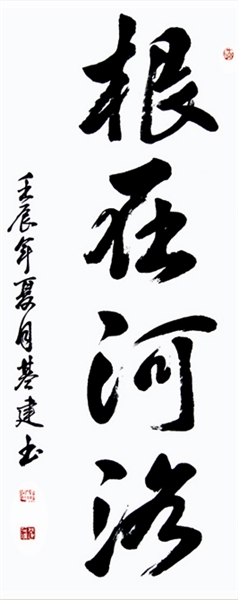 根在河洛
壬辰年夏月基建书